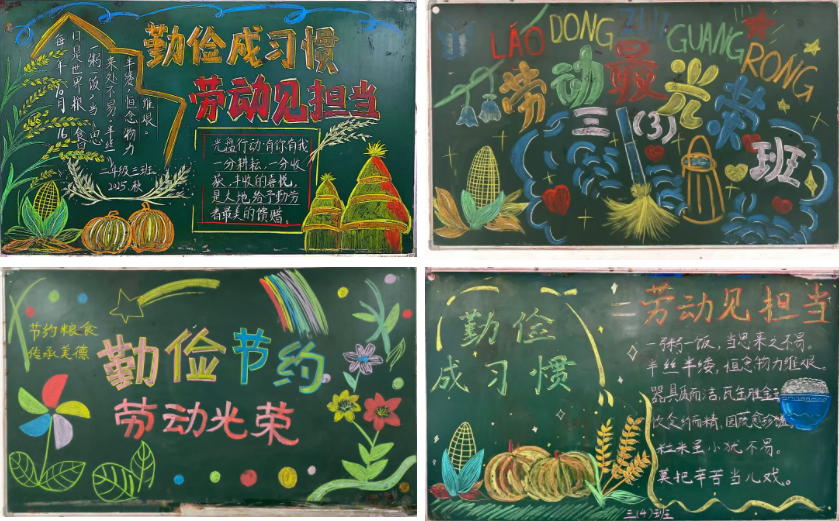 勤俭成习惯
劳动见担当
半缕,恒念物力维艰。
一粥一饭,当思来处不易;半丝
每年10月16日是世界粮食日
二年级三班
2025.秋
光盘行动·有你有我
一分耕耘,一分收
获,丰收的喜悦,
是大地给予勤劳
者最美的馈赠。
LÁO DONG ZUI GUANG RONG
劳动最光荣
三(3)
班
节约粮食
传承美德
勤俭节约
劳动光荣
勤俭
成习惯
劳动见担当
一粥一饭,当思来之不易。
半丝半缕,恒念物力维艰。
器具质而洁,瓦缶胜金玉
饮食约而精,园蔬愈珍馐
粒米虽小犹不易。
莫把辛苦当儿戏。
三(4)班